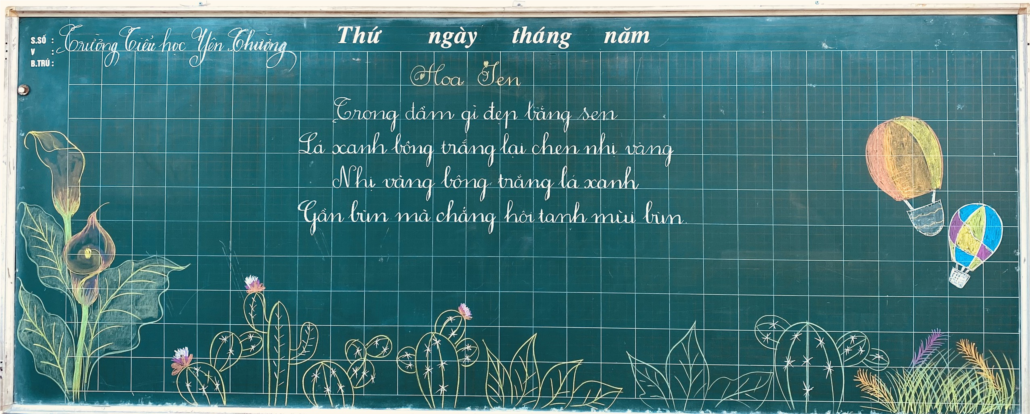 S.SỐ :
V :
B.TRÚ :
Trường Tiểu học Yên Thường
Thứ ngày tháng năm
Hoa Sen
Trong đầm gì đẹp bằng sen
Lá xanh bông trắng lại chen nhị vàng
Nhị vàng bông trắng lá xanh
Gần bùn mà chẳng hôi tanh mùi bùn